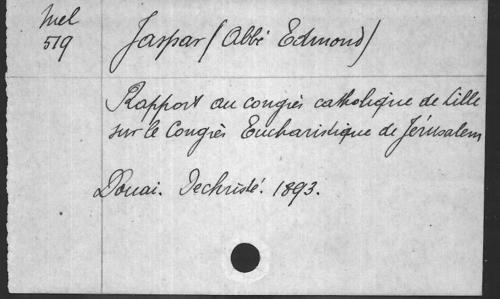 Mel
519
Jaspar (Abbé Edmond)
Rapport au congrès catholique de Lille
sur le Congrès Eucharistique de Jérusalem
Douai. Dechristé. 1893.